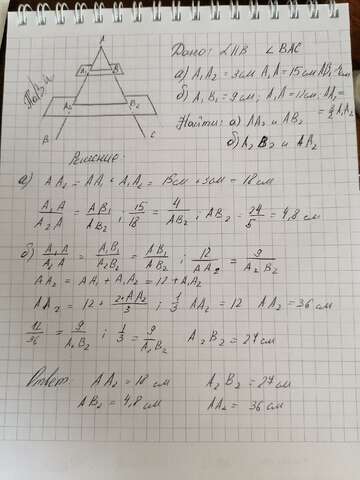 A
A₁ B₁
A₂ B₂
B C
Дано: α∥β ∠BAC
а) A₁A₂ = 3см A₁A = 15см AB₁ = 4см
б) A₁B₁ = 9см; A₁A = 12см; AA₁ =
Найти: а) AA₂ и AB₂
б) A₂B₂ и AA₂
Решение:
а) AA₂ = AA₁ + A₁A₂ = 15см + 3см = 18см
A₁A / A₂A = AB₁ / AB₂; 15/18 = 4/AB₂; AB₂ = 24/5 = 4,8см
б) A₁A / A₂A = A₁B₁ / A₂B₂ = AB₁ / AB₂; 12/AA₂ = 9/A₂B₂
AA₂ = AA₁ + A₁A₂ = 12 + A₁A₂
AA₂ = 12 + 2·AA₂/3; 1/3 AA₂ = 12 AA₂ = 36см
12/36 = 9/A₂B₂; 1/3 = 9/A₂B₂ A₂B₂ = 27см
Ответ: AA₂ = 18см A₂B₂ = 27см
AB₂ = 4,8см AA₂ = 36см